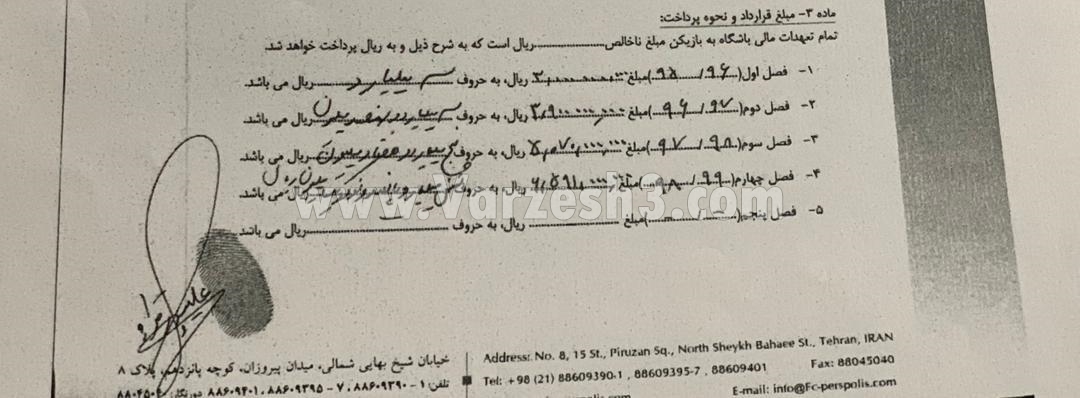 ماده ۳- مبلغ قرارداد و نحوه پرداخت:
تمام تعهدات مالی باشگاه به بازیکن مبلغ ناخالص....................ریال است که به شرح ذیل و به ریال پرداخت خواهد شد.
۱- فصل اول(۹۵/۹۶)مبلغ ۳,۰۰۰,۰۰۰,۰۰۰ ریال، به حروف سه میلیارد ریال می باشد.
۲- فصل دوم(۹۶/۹۷)مبلغ ۳,۹۰۰,۰۰۰,۰۰۰ ریال، به حروف سه میلیارد و نهصد میلیون ریال می باشد.
۳- فصل سوم(۹۷/۹۸)مبلغ ۵,۰۷۰,۰۰۰,۰۰۰ ریال، به حروف پنج میلیارد و هفتاد میلیون ریال می باشد.
۴- فصل چهارم(۹۸/۹۹)مبلغ ۶,۵۹۱,۰۰۰,۰۰۰ ریال، به حروف ریال می باشد.
۵- فصل پنجم(........./.........)مبلغ .................... ریال، به حروف ....................ریال می باشد.
www.Varzesh3.com
خیابان شیخ بهایی شمالی، میدان پیروزان، کوچه پانزدهم، پلاک ۸
تلفن ۱-۸۸۶۰۹۳۹۰ ، ۷-۸۸۶۰۹۳۹۵ ، ۸۸۶۰۹۴۰۱
Address: No. 8, 15 St., Piruzan Sq., North Sheykh Bahaee St., Tehran, IRAN
Tel: +98 (21) 88609390-1 , 88609395-7 , 88609401 Fax: 88045040
E-mail: info@Fc-perspolis.com